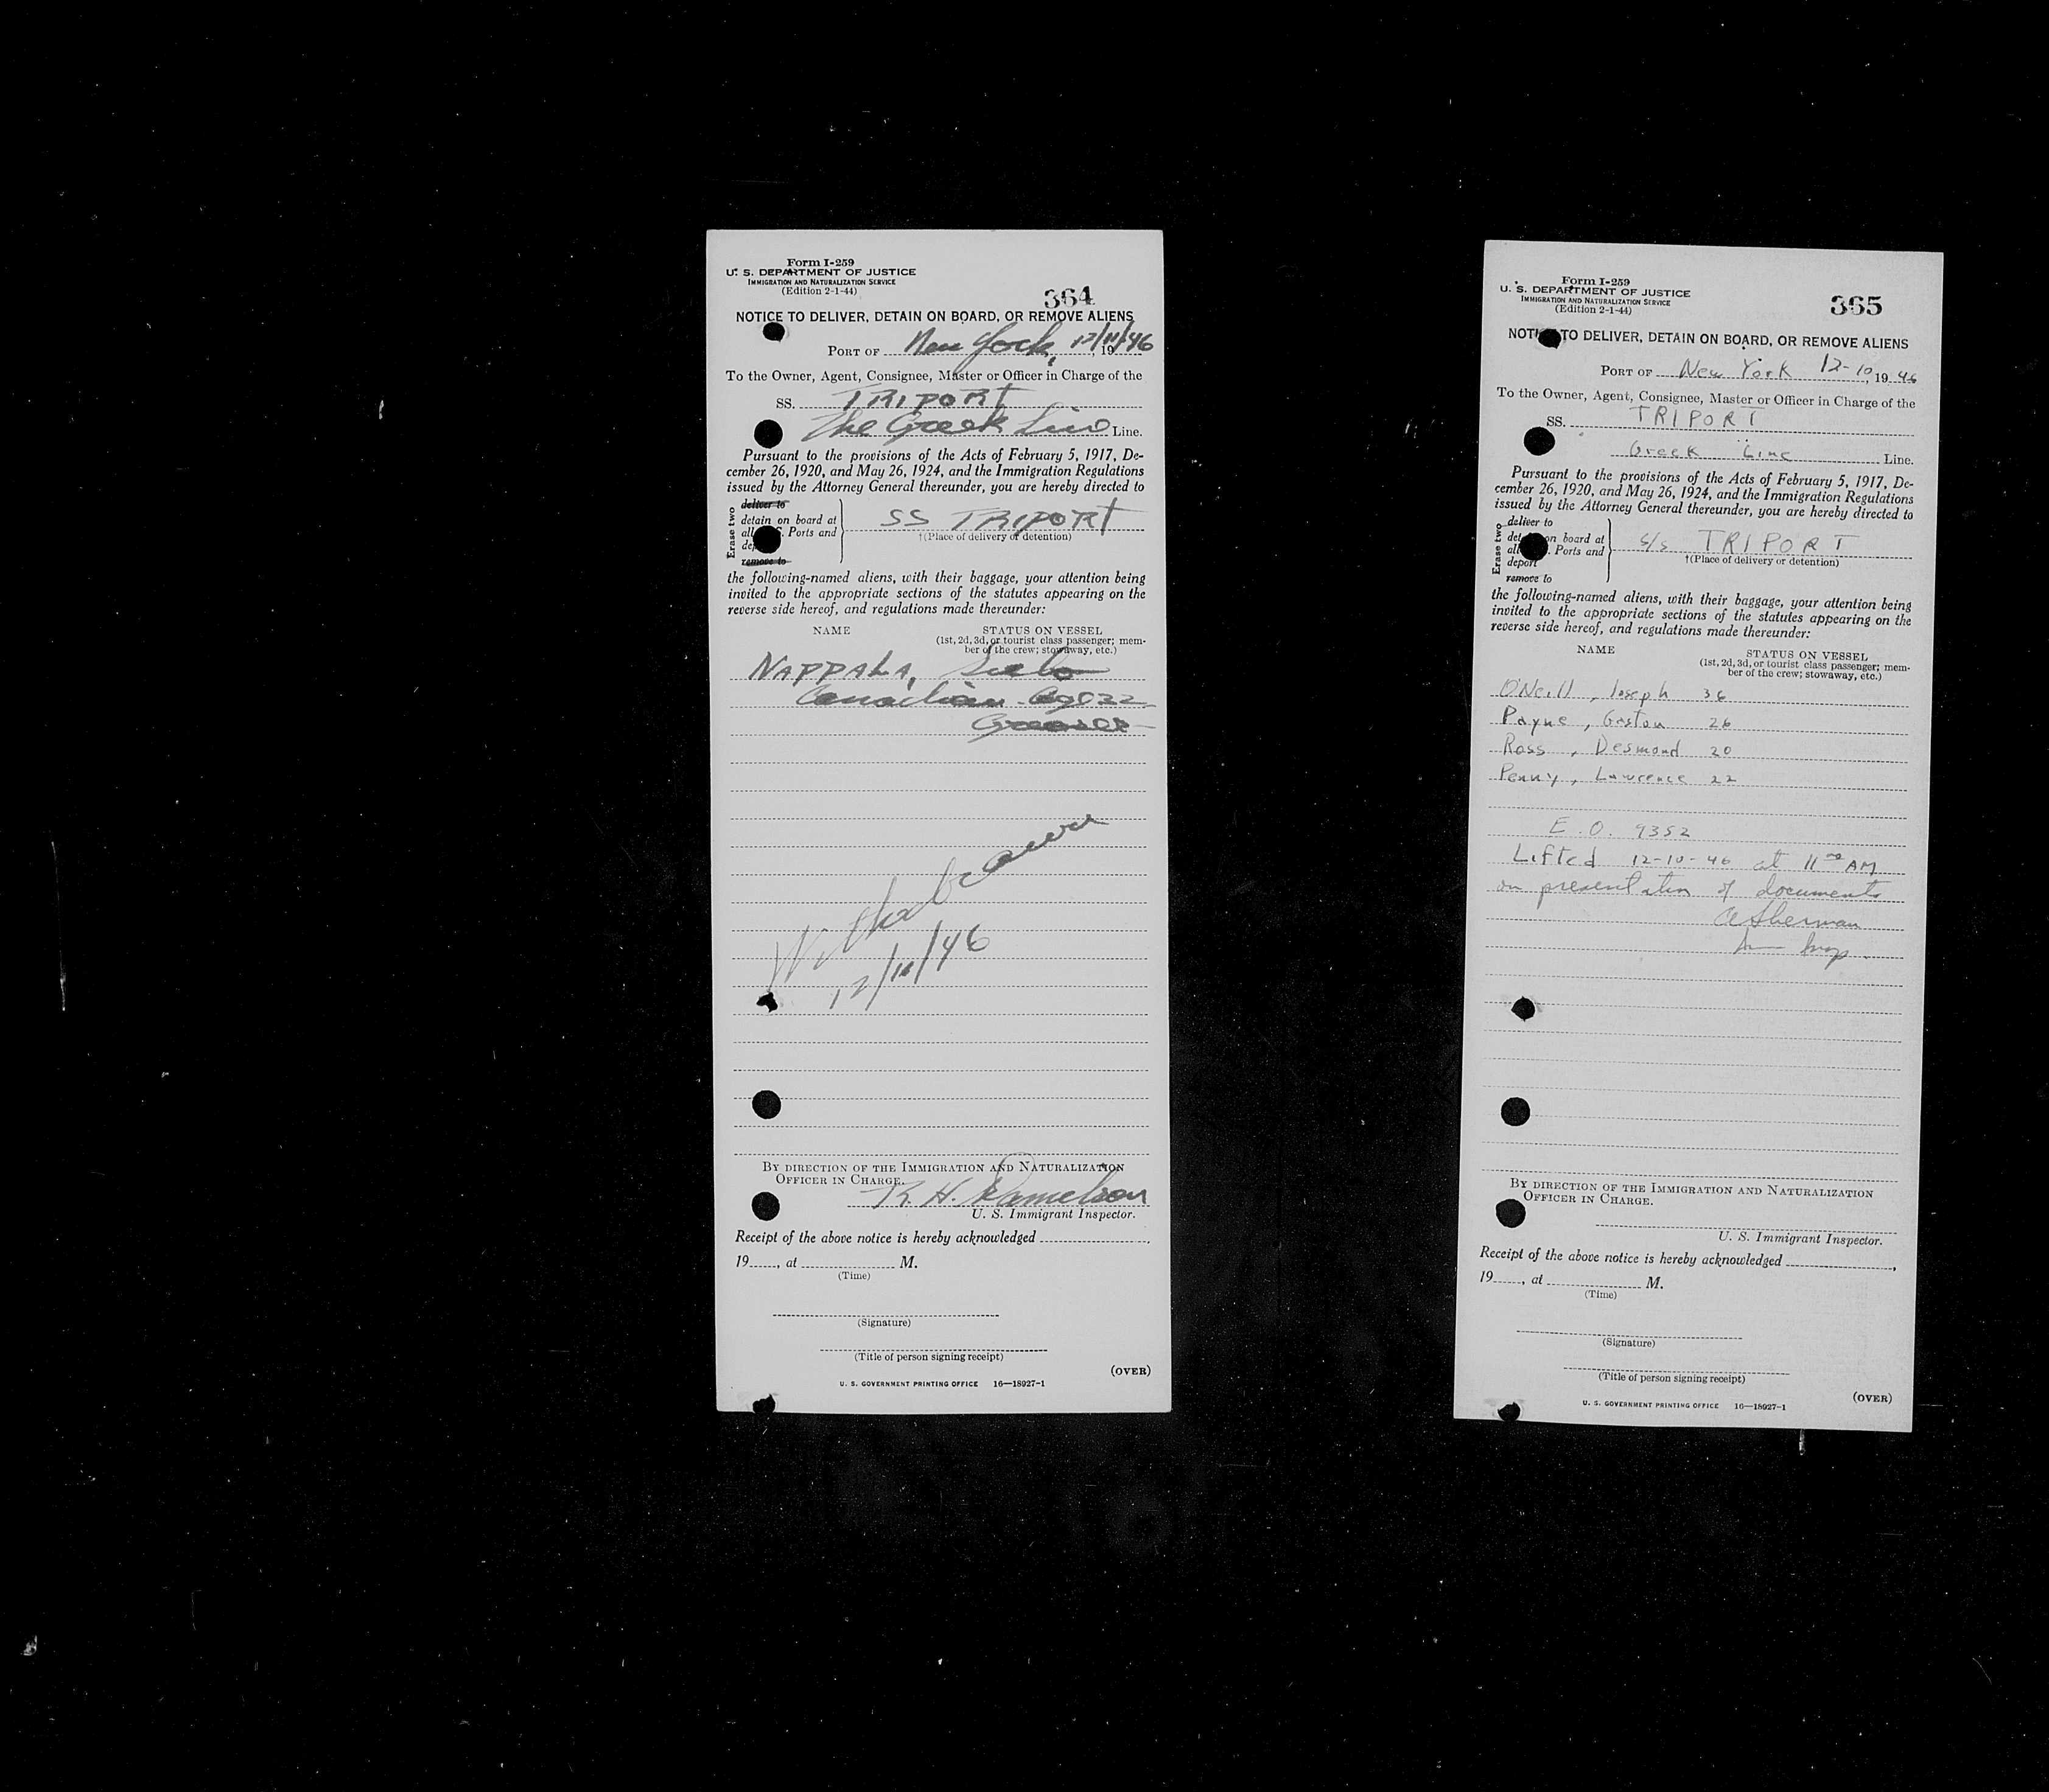 Form I-259
U. S. DEPARTMENT OF JUSTICE
IMMIGRATION AND NATURALIZATION SERVICE
(Edition 2-1-44)
364
NOTICE TO DELIVER, DETAIN ON BOARD, OR REMOVE ALIENS
PORT OF New York, 12/11/46, 19
To the Owner, Agent, Consignee, Master or Officer in Charge of the
SS. TRIPORT
The Greek Line Line.
Pursuant to the provisions of the Acts of February 5, 1917, De-
cember 26, 1920, and May 26, 1924, and the Immigration Regulations
issued by the Attorney General thereunder, you are hereby directed to
Erase two
deliver to
detain on board at
all Ports and
de
remove to
SS TRIPORT
†(Place of delivery or detention)
the following-named aliens, with their baggage, your attention being
invited to the appropriate sections of the statutes appearing on the
reverse side hereof, and regulations made thereunder:
NAME STATUS ON VESSEL
(1st, 2d, 3d, or tourist class passenger; mem-
ber of the crew; stowaway, etc.)
NAPPALA,
Canadian age 22
Withdrawn
12/11/46
BY DIRECTION OF THE IMMIGRATION AND NATURALIZATION
OFFICER IN CHARGE.
R. H. Danielson
U. S. Immigrant Inspector.
Receipt of the above notice is hereby acknowledged
19 , at M.
(Time)
(Signature)
(Title of person signing receipt)
(OVER)
U. S. GOVERNMENT PRINTING OFFICE 16—18927-1
Form I-259
U. S. DEPARTMENT OF JUSTICE
IMMIGRATION AND NATURALIZATION SERVICE
(Edition 2-1-44)
365
NOTICE TO DELIVER, DETAIN ON BOARD, OR REMOVE ALIENS
PORT OF New York 12-10, 19 46
To the Owner, Agent, Consignee, Master or Officer in Charge of the
SS. TRIPORT
Greek Line Line.
Pursuant to the provisions of the Acts of February 5, 1917, De-
cember 26, 1920, and May 26, 1924, and the Immigration Regulations
issued by the Attorney General thereunder, you are hereby directed to
Erase two
deliver to
det on board at
all Ports and
deport
remove to
S/S TRIPORT
†(Place of delivery or detention)
the following-named aliens, with their baggage, your attention being
invited to the appropriate sections of the statutes appearing on the
reverse side hereof, and regulations made thereunder:
NAME STATUS ON VESSEL
(1st, 2d, 3d, or tourist class passenger; mem-
ber of the crew; stowaway, etc.)
O'Neill, Joseph 36
Payne, Gaston 26
Ross, Desmond 20
Penny, Lawrence 22
E.O. 9352
Lifted 12-10-46 at 11 00 AM
on presentation of documents
Sherman
Imm Insp.
BY DIRECTION OF THE IMMIGRATION AND NATURALIZATION
OFFICER IN CHARGE.
U. S. Immigrant Inspector.
Receipt of the above notice is hereby acknowledged ,
19 , at M.
(Time)
(Signature)
(Title of person signing receipt)
(OVER)
U. S. GOVERNMENT PRINTING OFFICE 16—18927-1